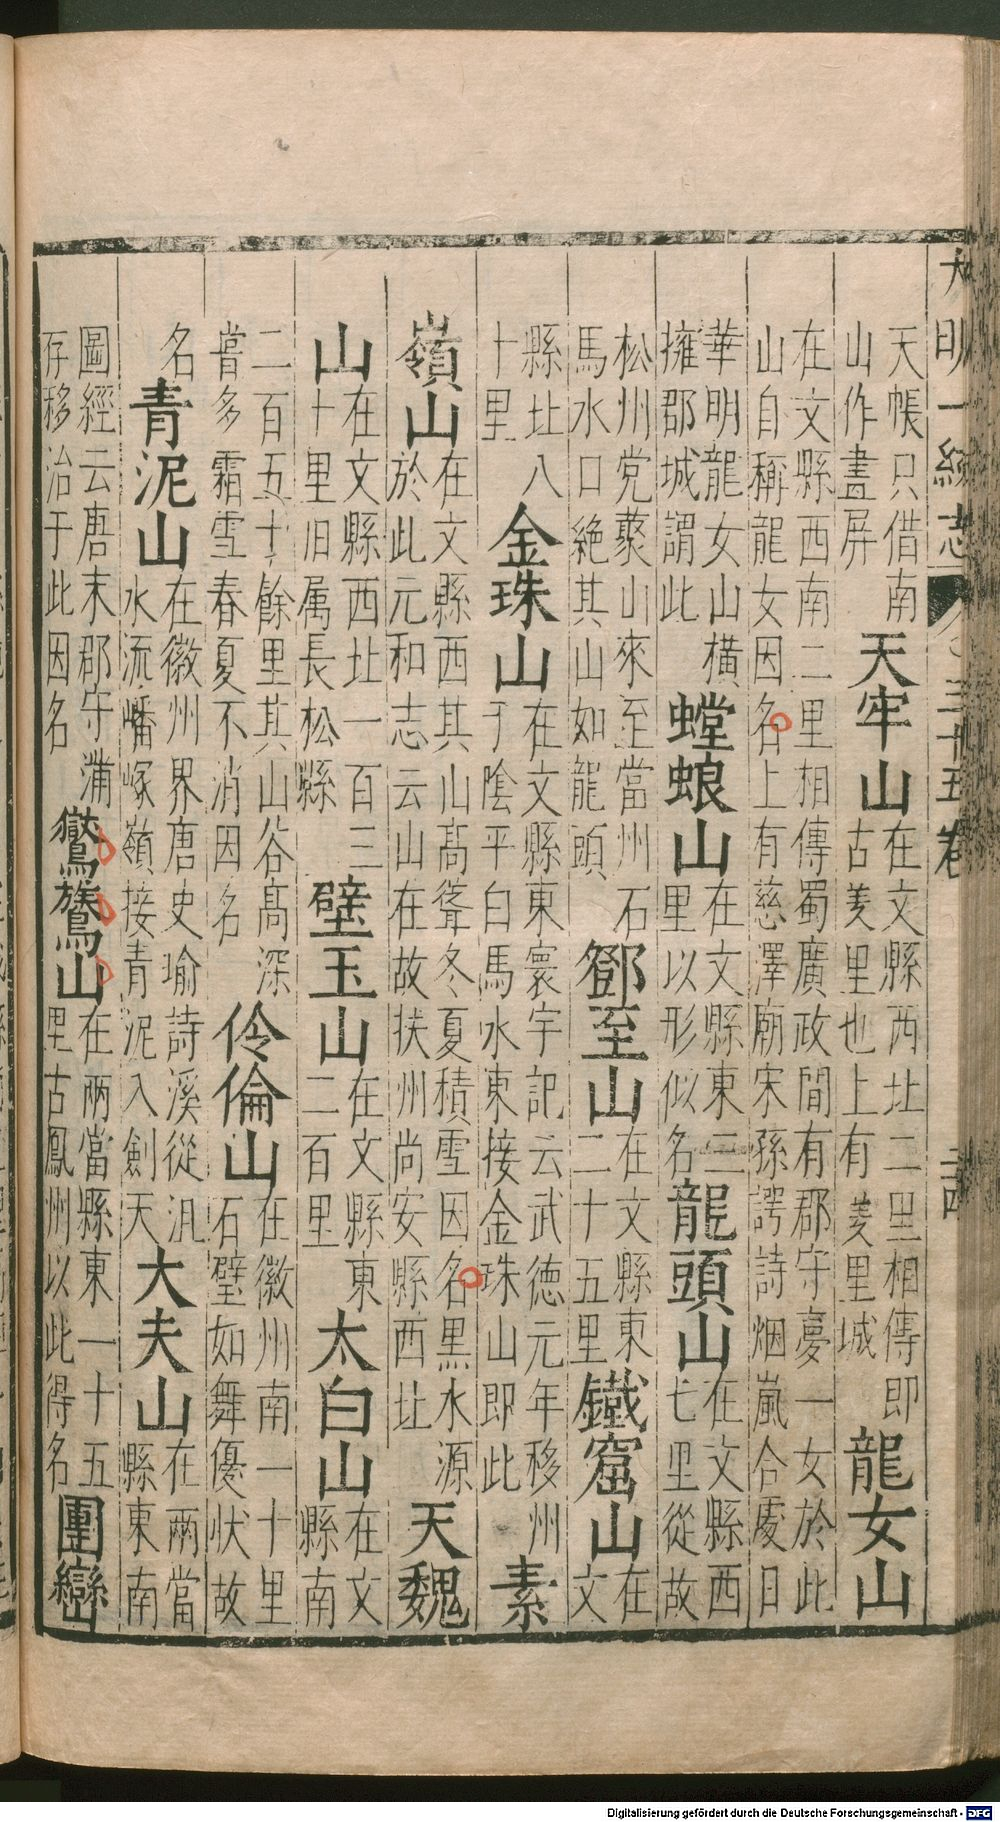 大明一統志 卷三十五
二十四
天帳只借南
山作晝屏
天牢山
在文縣西北二里相傳即
古羑里也上有羑里城
龍女山
在文縣西南二里相傳蜀廣政間有郡守夢一女於此
山自稱龍女因名上有慈澤廟宋孫諤詩烟嵐合處日
華明龍女山橫
擁郡城謂此
螳蜋山
在文縣東三
里以形似名
龍頭山
在文縣西
七里從故
松州党藂山來至當州石
馬水口絶其山如龍頭
鄧至山
在文縣東
二十五里
鐵窟山
在
文
縣北八
十里
金珠山
在文縣東寰宇記云武德元年移州
于陰平白馬水東接金珠山即此
素
嶺山
在文縣西其山高聳冬夏積雪因名黑水源
於此元和志云山在故扶州尚安縣西北
天魏
山
在文縣西北一百三
十里旧属長松縣
壁玉山
在文縣東
二百里
太白山
在文
縣南
二百五十餘里其山谷高深
嘗多霜雪春夏不消因名
伶倫山
在徽州南一十里
石壁如舞優状故
名
青泥山
在徽州界唐史瑜詩溪從汎
水流嶓冢嶺接青泥入劍天
大夫山
在兩當
縣東南
圖經云唐末郡守蒲
存移治于此因名
鸑鷟山
在兩當縣東一十五
里古鳳州以此得名
團巒
Digitalisierung gefördert durch die Deutsche Forschungsgemeinschaft - DFG